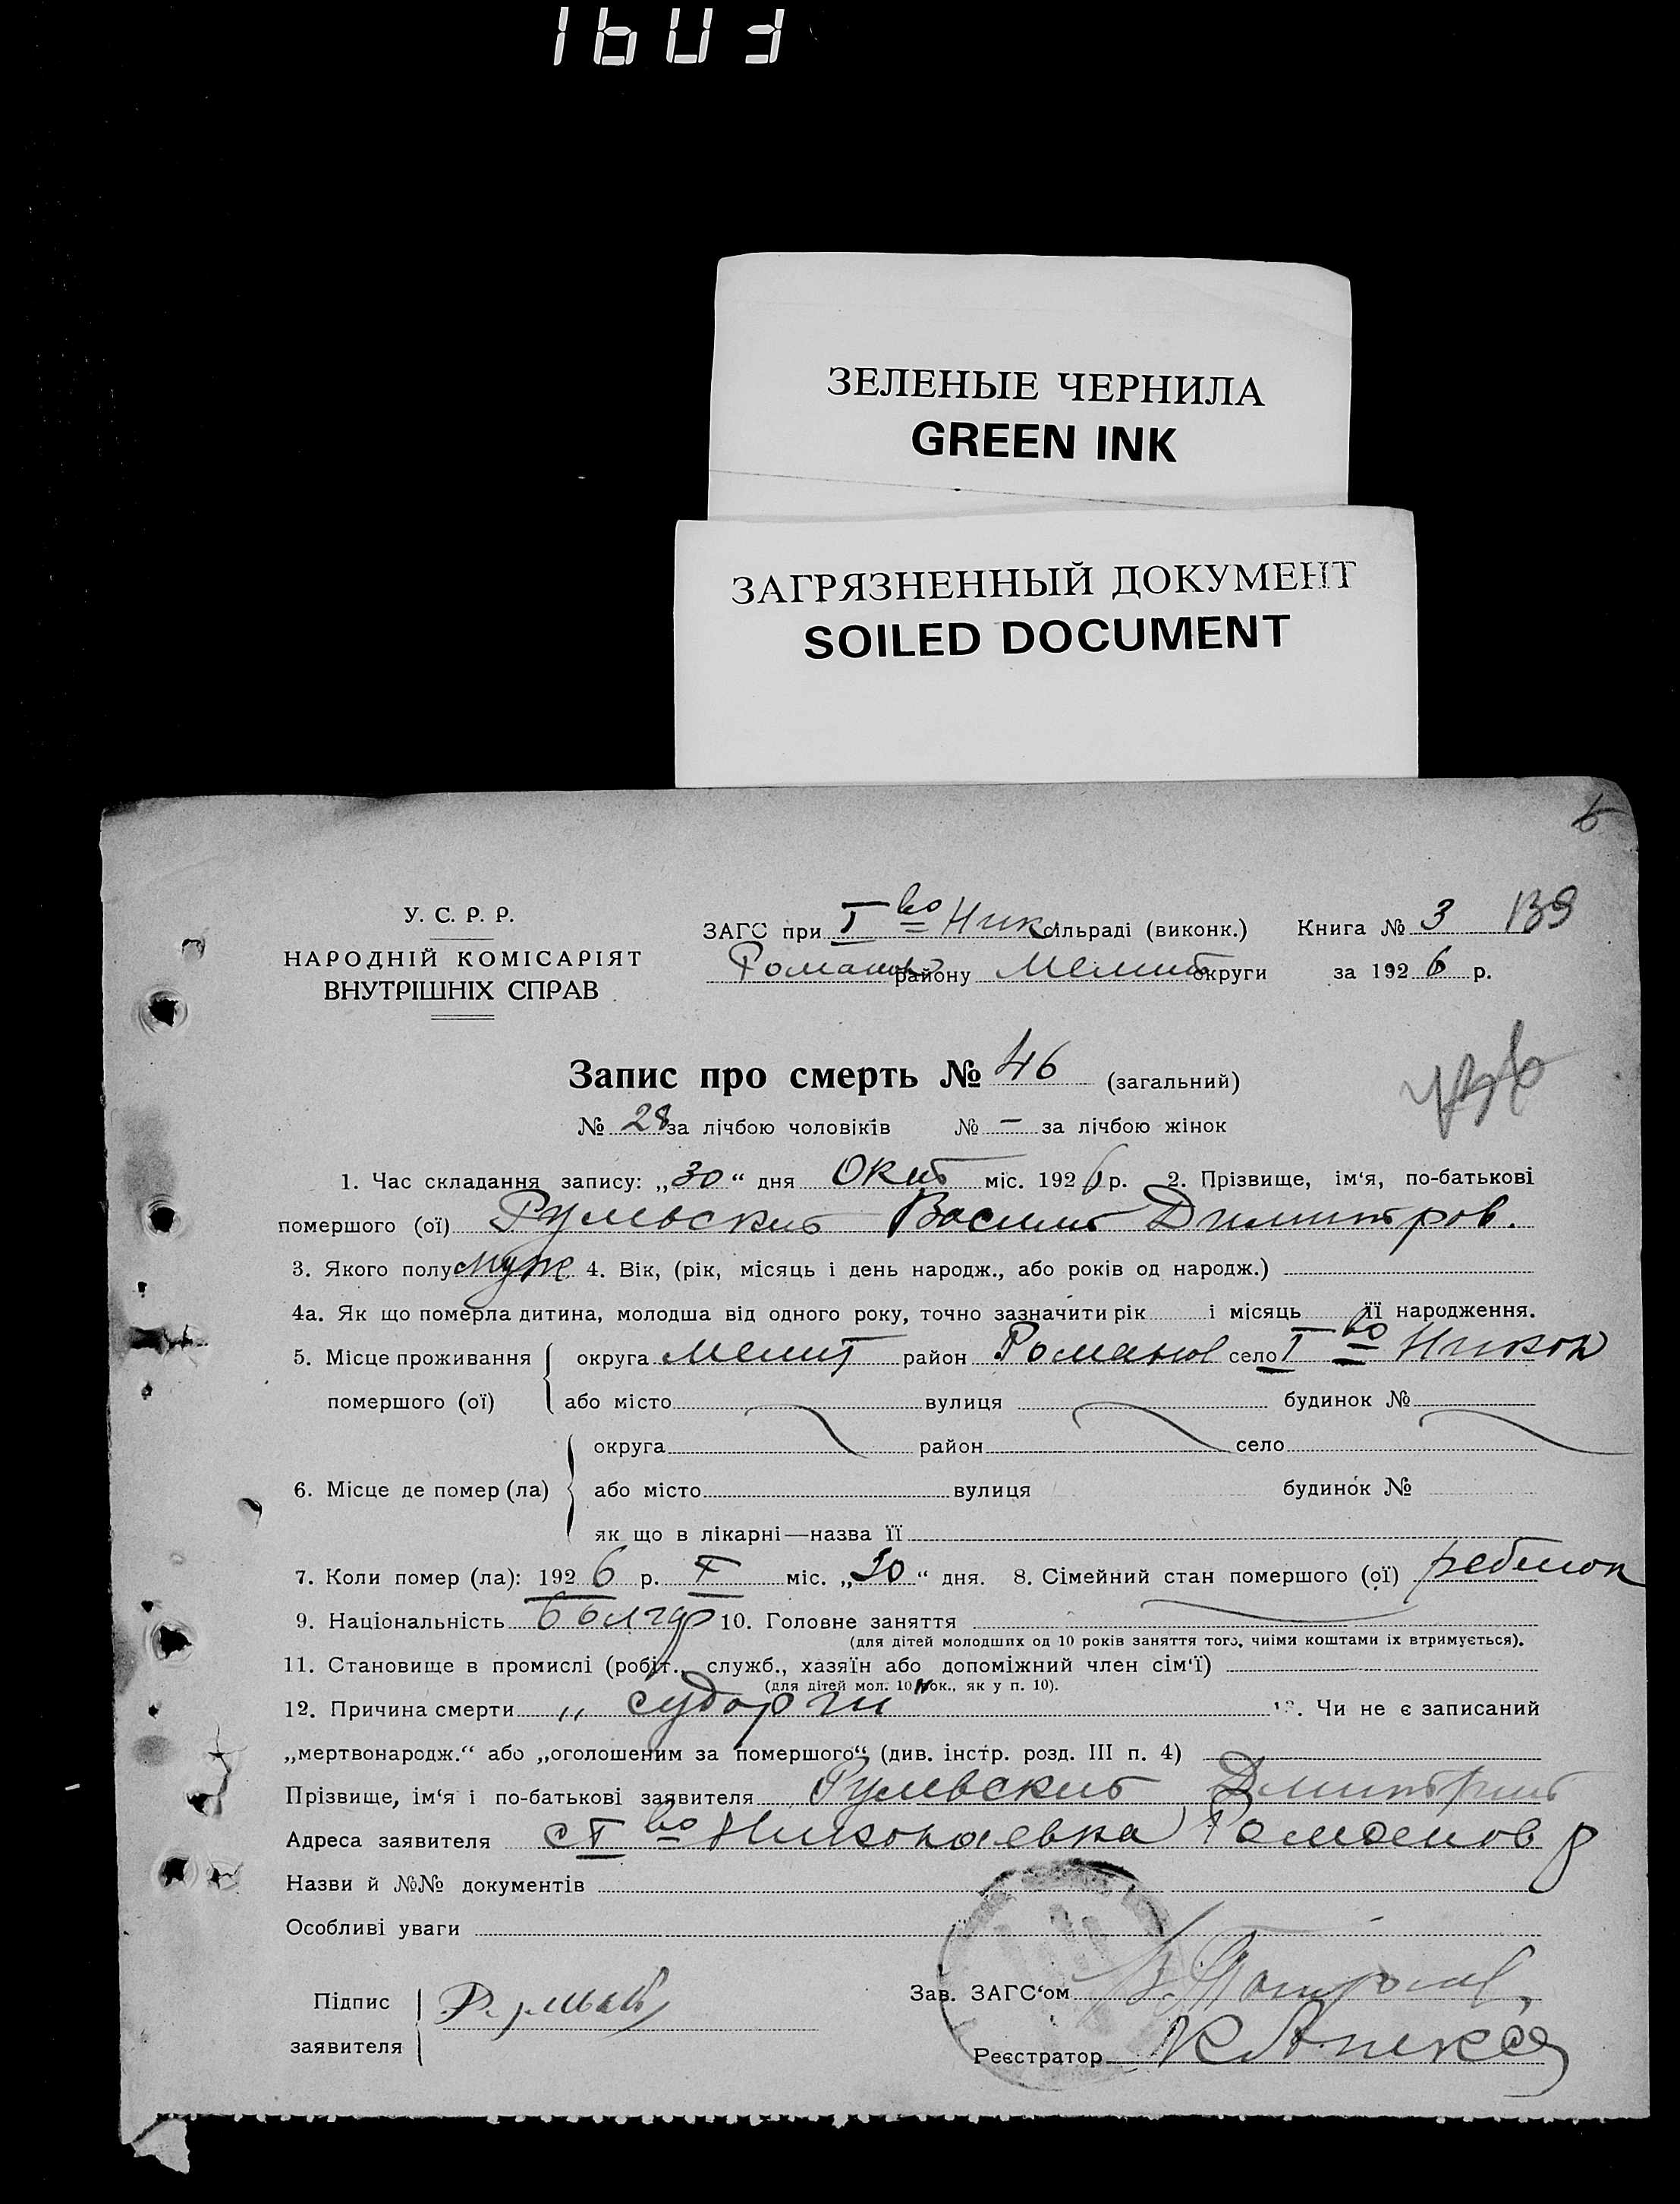 ЗЕЛЕНЫЕ ЧЕРНИЛА
GREEN INK
ЗАГРЯЗНЕННЫЙ ДОКУМЕНТ
SOILED DOCUMENT
У. С. Р. Р.
НАРОДНІЙ КОМІСАРІЯТ
ВНУТРІШНІХ СПРАВ
ЗАГС при I во Ник сільраді (виконк.) Книга № 3 139
Романов району Мелит округи за 1926 р.
Запис про смерть № 46 (загальний)
№ 28 за лічбою чоловіків № — за лічбою жінок
1. Час складання запису: „30“ дня Окт міс. 1926 р. 2. Прізвище, ім'я, по-батькові
помершого (ої) Рулевский Василий Димитров.
3. Якого полу муж 4. Вік, (рік, місяць і день народж., або років од народж.)
4а. Як що померла дитина, молодша від одного року, точно зазначити рік і місяць її народження.
5. Місце проживання помершого (ої) округа Мелит район Романов село I во Никол
або місто вулиця будинок №
6. Місце де помер (ла) округа район село
або місто вулиця будинок №
як що в лікарні—назва її
7. Коли помер (ла): 1926 р. X міс. „30“ дня. 8. Сімейний стан помершого (ої) ребенок
9. Національність болгар 10. Головне заняття
(для дітей молодших од 10 років заняття того, чиїми коштами їх втримується).
11. Становище в промислі (робіт., служб., хазяїн або допоміжний член сім'ї)
(для дітей мол. 10 рок., як у п. 10).
12. Причина смерти „ судороги 13. Чи не є записаний
„мертвонародж.“ або „оголошеним за помершого“ (див. інстр. розд. III п. 4)
Прізвище, ім'я і по-батькові заявителя Рулевский Дмитрий
Адреса заявителя с I во Николаевка Романов р
Назви й №№ документів
Особливі уваги
Підпис заявителя
Зав. ЗАГС'ом
Реєстратор